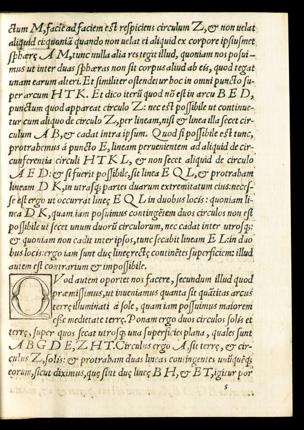 ctum M, facie ad faciem est respiciens circulum Z, & non uelat
aliquid ei: quoniã quando non uelat ei aliquid ex corpore ipsiusmet
sphæræ A M, tunc nulla alia res tegit illud, quoniam nos posui-
mus ut inter duas sphæras non sit corpus aliud ab eis, quod tegat
unam earum alteri. Et similiter ostendetur hoc in omni puncto su-
per arcum H T K. Et dico iterũ quod nõ est in arcu B E D,
punctum quod appareat circulo Z: nec est possibile ut continue-
tur cum aliquo de circulo Z, per lineam, nisi & linea illa secet cir-
culum A B, & cadat intra ipsum. Quod si possibile est tunc,
protrahemus à puncto E, lineam peruenientem ad aliquid de cir-
cunferentia circuli H T K L, & non secet aliquid de circulo
A E D: & si fuerit possibile, sit linea E Q L, & protrabam
lineam D K, in utrasq; partes duarum extremitatum eius: necesse-
se est ergo ut occurrat lineæ E Q L in duobus locis: quoniam li-
nea D K, quam iam posuimus contingẽtem duos circulos non est
possibile ut secet unum duorũ circulorum, nec cadat inter utrosq;:
& quoniam non cadit inter ipsos, tunc secabit lineam E L: in duo
bus locis: ergo iam sunt duę lineę rectę continẽtes superficiem: illud
autem est contrarium, & impossibile.
QVod autem oportet nos facere, secundum illud quod
præmissimus, ut inueniamus quanta sit quãtitas arcus
terrę illuminati à sole, quam iam possuimus maiorem
esse medietate terrę. Ponam ergo duos circulos solis et
terrę, super quos secat utrosq; una superficies plana, quales sunt
A B G D E, Z H T. Circulus ergo A, sit terræ, & cir-
culus Z, solis: & protrabam duas lineas contingentes unũquẽq;
eorum, sicut diximus, quę sint duę lineę B H, & E T, igitur por
5